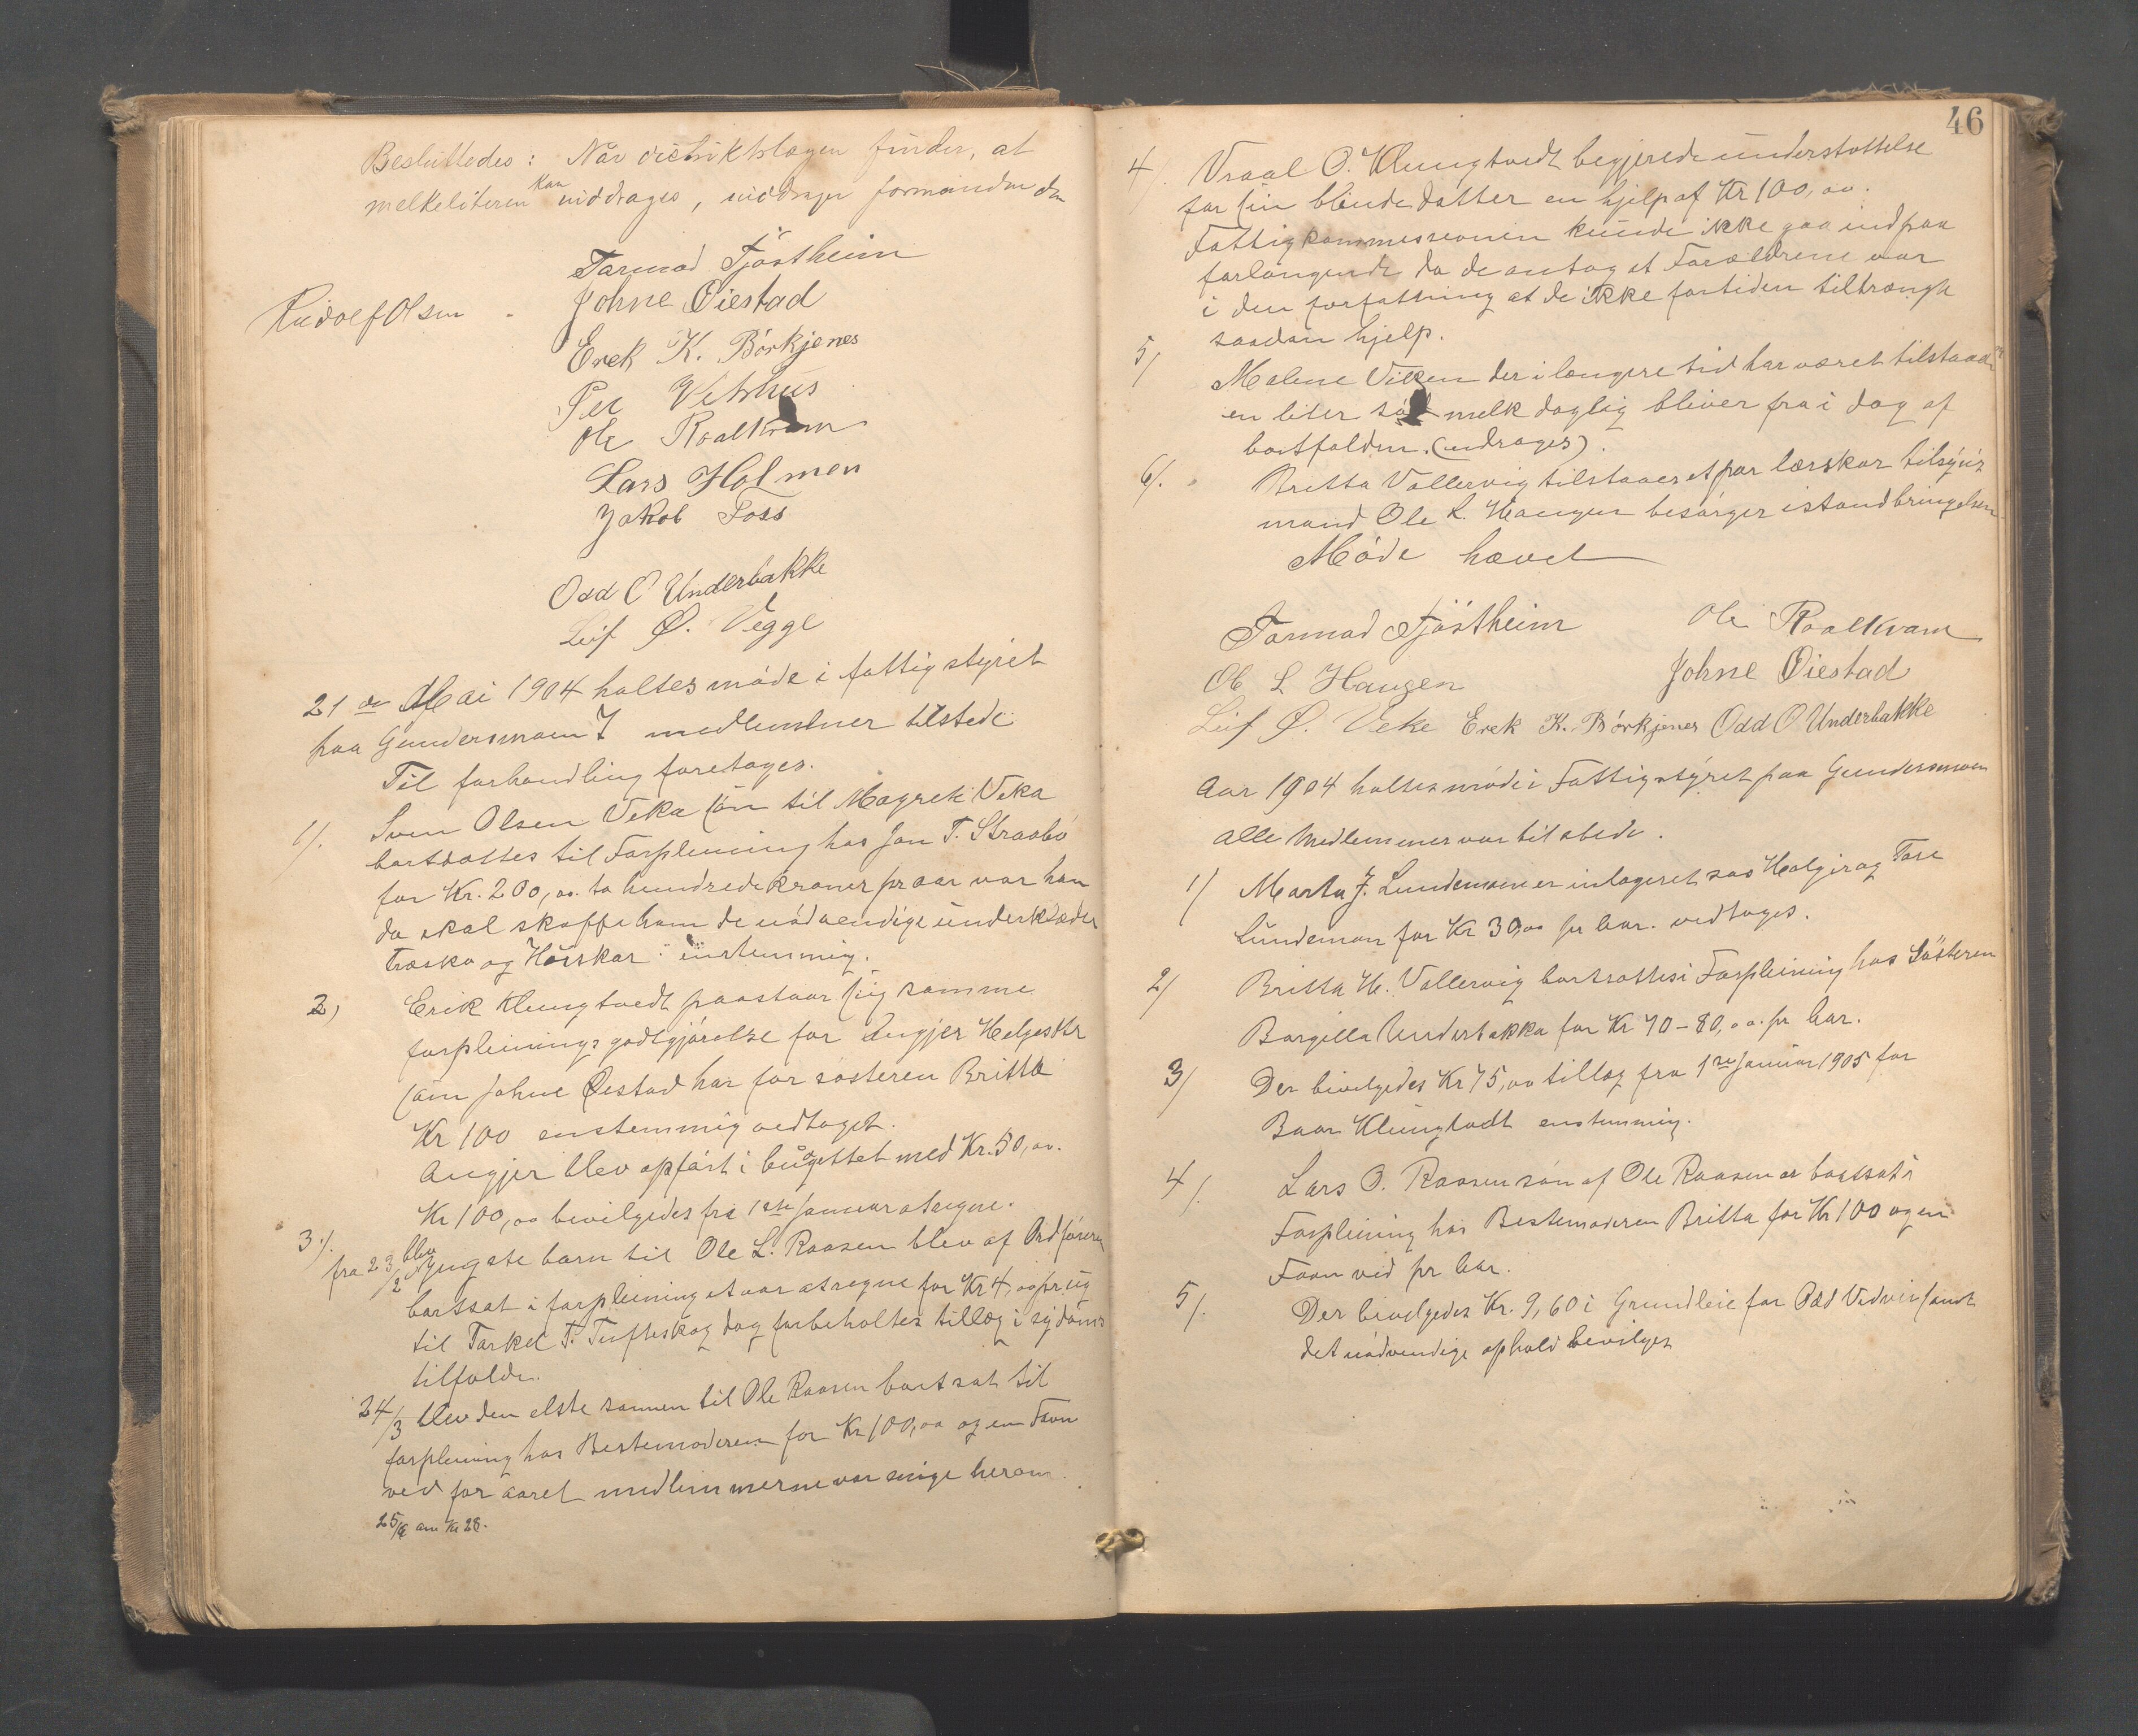 Besluttedes: Når distriktslægen finder, at
melkeliteren kan inddrages, inddrager formanden den
Tarmod Tjöstheim
Rudolf Olsen - Johne Öiestad
Erek K. Börkjenes
Per Vetrhus
Ole Roalkvam
Lars Holmen
Jakob Foss
Odd O Underbakke
Leif Ø. Vegge
21de Mai 1904 holtes möde i fattigstyret
paa Gundersmoen 7 medlemmer tilstede
Til forhandling foretoges.
1/. Sven Olsen Veka sön til Magrete Veka
bortsattes til Forpleining hos Jon T. Straabö
for Kr. 200,00 to hundrede kroner pr aar var han
da skal skaffe ham de nödvendige underklæder
træsko og Hösskor: enstemmig.
2) Erik Klungtvedt paastaar sig samme
forpleinings godtgjörelse for Angjer Helgesdtr
som Johne Øiestad har for sösteren Britta
Kr 100 enstemmig vedtaget.
Angjer blev opfört i budgettet med Kr. 50,00.
Kr 100,00 bevilgedes fra 1ste Januar atregne.
3/. fra 23/2 blev yngste barn til Ole L. Raasen blev af Ordförern
bortsat i forpleining et aar atregne for Kr 4,00 pr ug
til Tarkel T. Tufteskog dog forbeholtes tillæg i sydoms
tilfolde.
24/3 blev den elste sønnen til Ole Raasen bortsat til
forpleining hos Bestemoderen for Kr 100,00 og en Favn
ved for aaret medlemmerne var enige herom.
25/6 am Kr 28.
46
4/. Vraal O. Klungtvedt begjerede understøttelse
for sin blinde datter en hjelp af Kr 100,00.
Fattigkommessionen kunde ikke gaa ind paa
forlangende da de antog at Forældrene var
i den forfattning at de ikke fortiden tiltrængte
saadan hjelp.
5/ Malene Viken der i længere tid har været tilstaaet
en liter söd melk daglig bliver fra i dag af
bortfalden. (indrages).
6/. Britta Vallervig tilstaaes et par lærskor tilsyns
mand Ole L. Haugen besörger istandbringelsen
Möde hævet
Tarmod Tjöstheim Ole Roalkvam
Ole L Haugen Johne Öiestad
Leif Ø. Veke Erek K. Börkjenes Odd O Underbakke
Aar 1904 holtes möde i Fattigstyret paa Gundersmoen
alle Medlemmer var til stede.
1/ Marta J. Lundemoen er inlogeret hos Holger og Tore
Lundemoen for Kr 30,00 pr Aar. vedtoges.
2/ Britta H. Vallervig bortsattes i Forpleining hos Sösteren
Borgilla Underbakka for Kr 70-80,00. pr Aar.
3/ Der bivelgedes Kr 75,00 tillæg fra 1ste Januar 1905 for
Baar Klungtvedt enstemmig.
4/. Lars O. Raasen sön af Ole Raasen er bortsat i
Forpleining hos Bestemoderen Britta for Kr 100 og en
Favn ved pr Aar.
5/. Der bivelgedes Kr. 9,60 i Grundleie for Odd Vedvik samt
det nödvendige ophold bevilges